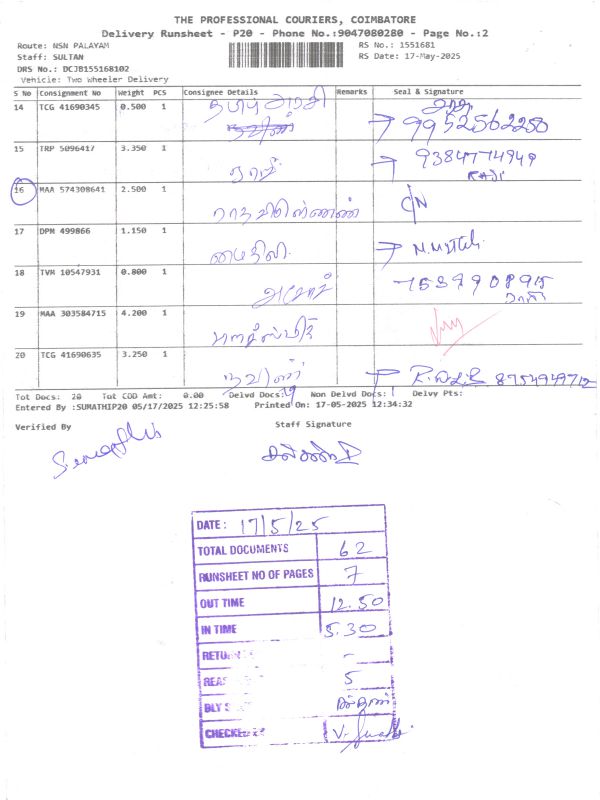 THE PROFESSIONAL COURIERS, COIMBATORE
Delivery Runsheet - P20 - Phone No.:9047080280 - Page No.:2
Route: NSN PALAYAM RS No.: 1551681
Staff: SULTAN RS Date: 17-May-2025
DRS No.: DCJB155168102
Vehicle: Two Wheeler Delivery
S No Consignment No Weight PCS Consignee Details Remarks Seal & Signature
14 TCG 41690345 0.500 1 தமிழ் அரசி
9952562250
15 TRP 5096417 3.350 1 9384774949
RAJI
16 MAA 574308641 2.500 1 C/N
17 DPM 499866 1.150 1 மைதிலி
18 TVM 10547931 0.800 1 அசோக்
19 MAA 303584715 4.200 1
20 TCG 41690635 3.250 1 நவீன் 8754949712
Tot Docs: 20 Tot COD Amt: 0.00 Delvd Docs: 19 Non Delvd Docs: 1 Delvy Pts:
Entered By :SUMATHIP20 05/17/2025 12:25:58 Printed On: 17-05-2025 12:34:32
Verified By Staff Signature
DATE: 17/5/25
TOTAL DOCUMENTS 62
RUNSHEET NO OF PAGES 7
OUT TIME 12.50
IN TIME 5.30
RETU -
REAS 5
DLY S
CHECKE